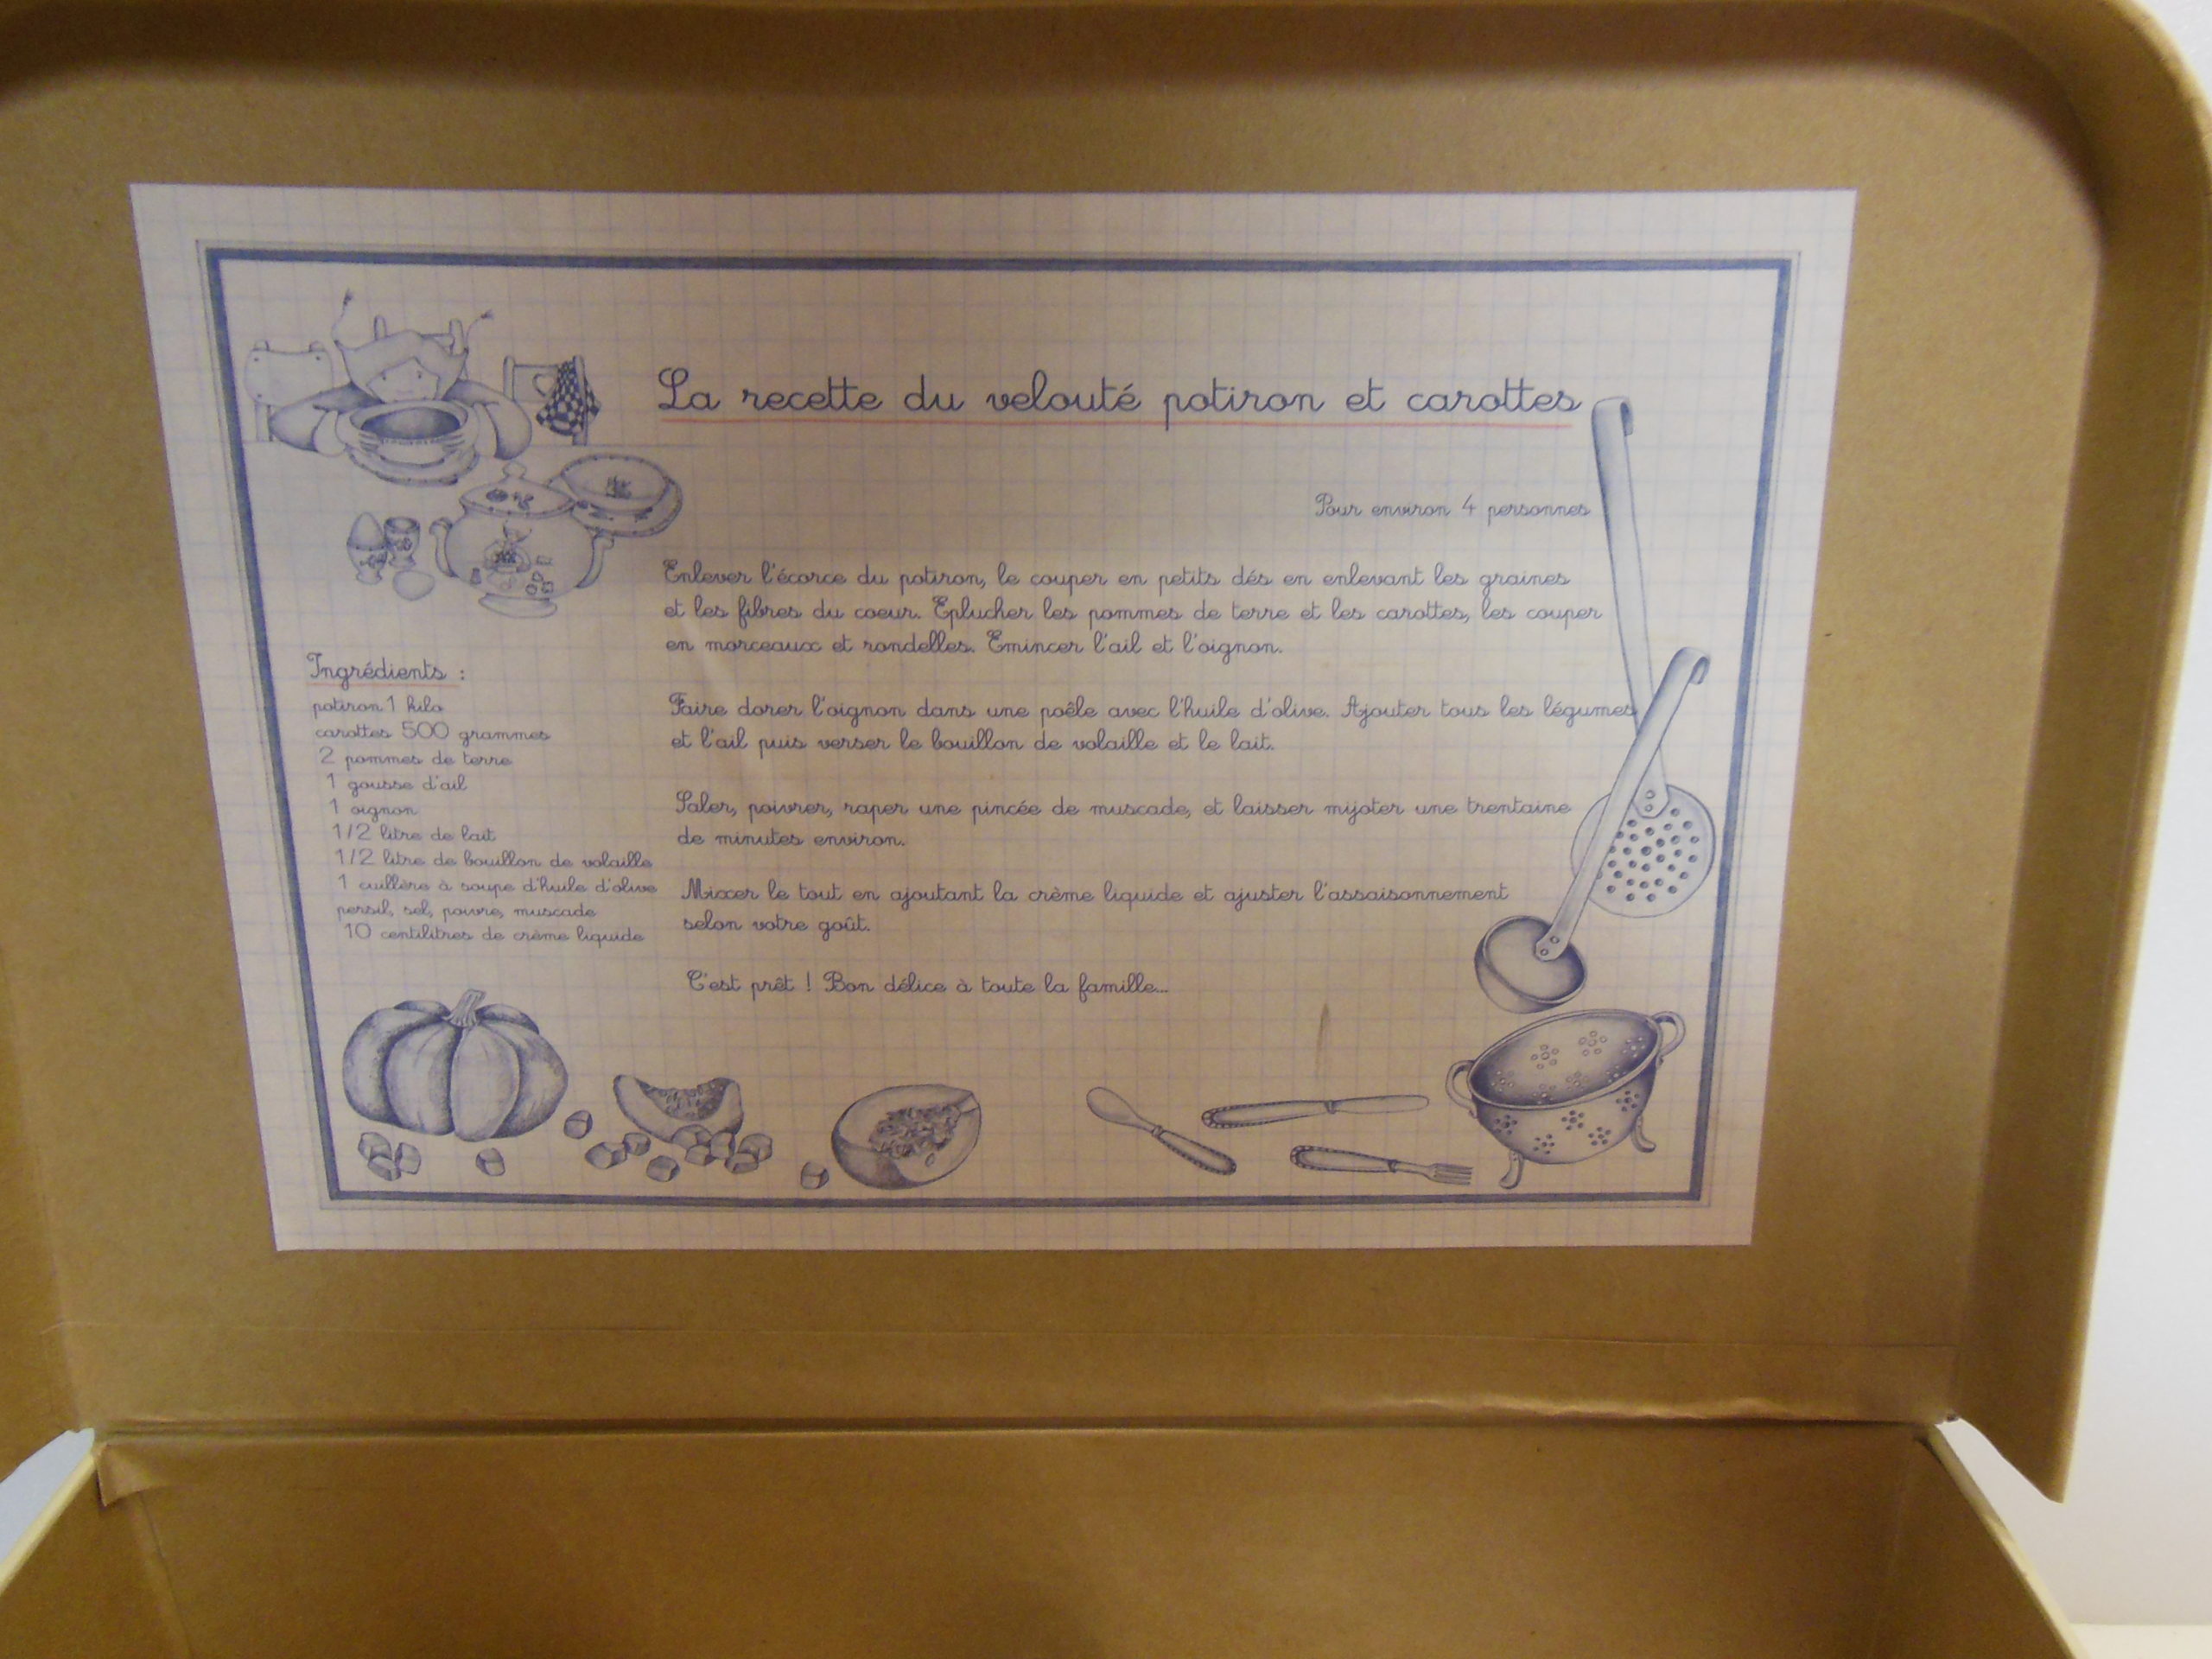 La recette du velouté potiron et carottes
Pour environ 4 personnes
Ingrédients :
potiron 1 kilo
carottes 500 grammes
2 pommes de terre
1 gousse d'ail
1 oignon
1/2 litre de lait
1/2 litre de bouillon de volaille
1 cuillère à soupe d'huile d'olive
persil, sel, poivre, muscade
10 centilitres de crème liquide
Enlever l'écorce du potiron, le couper en petits dés en enlevant les graines
et les fibres du coeur. Eplucher les pommes de terre et les carottes, les couper
en morceaux et rondelles. Emincer l'ail et l'oignon.
Faire dorer l'oignon dans une poêle avec l'huile d'olive. Ajouter tous les légumes
et l'ail puis verser le bouillon de volaille et le lait.
Saler, poivrer, raper une pincée de muscade, et laisser mijoter une trentaine
de minutes environ.
Mixer le tout en ajoutant la crème liquide et ajuster l'assaisonnement
selon votre goût.
C'est prêt ! Bon délice à toute la famille...